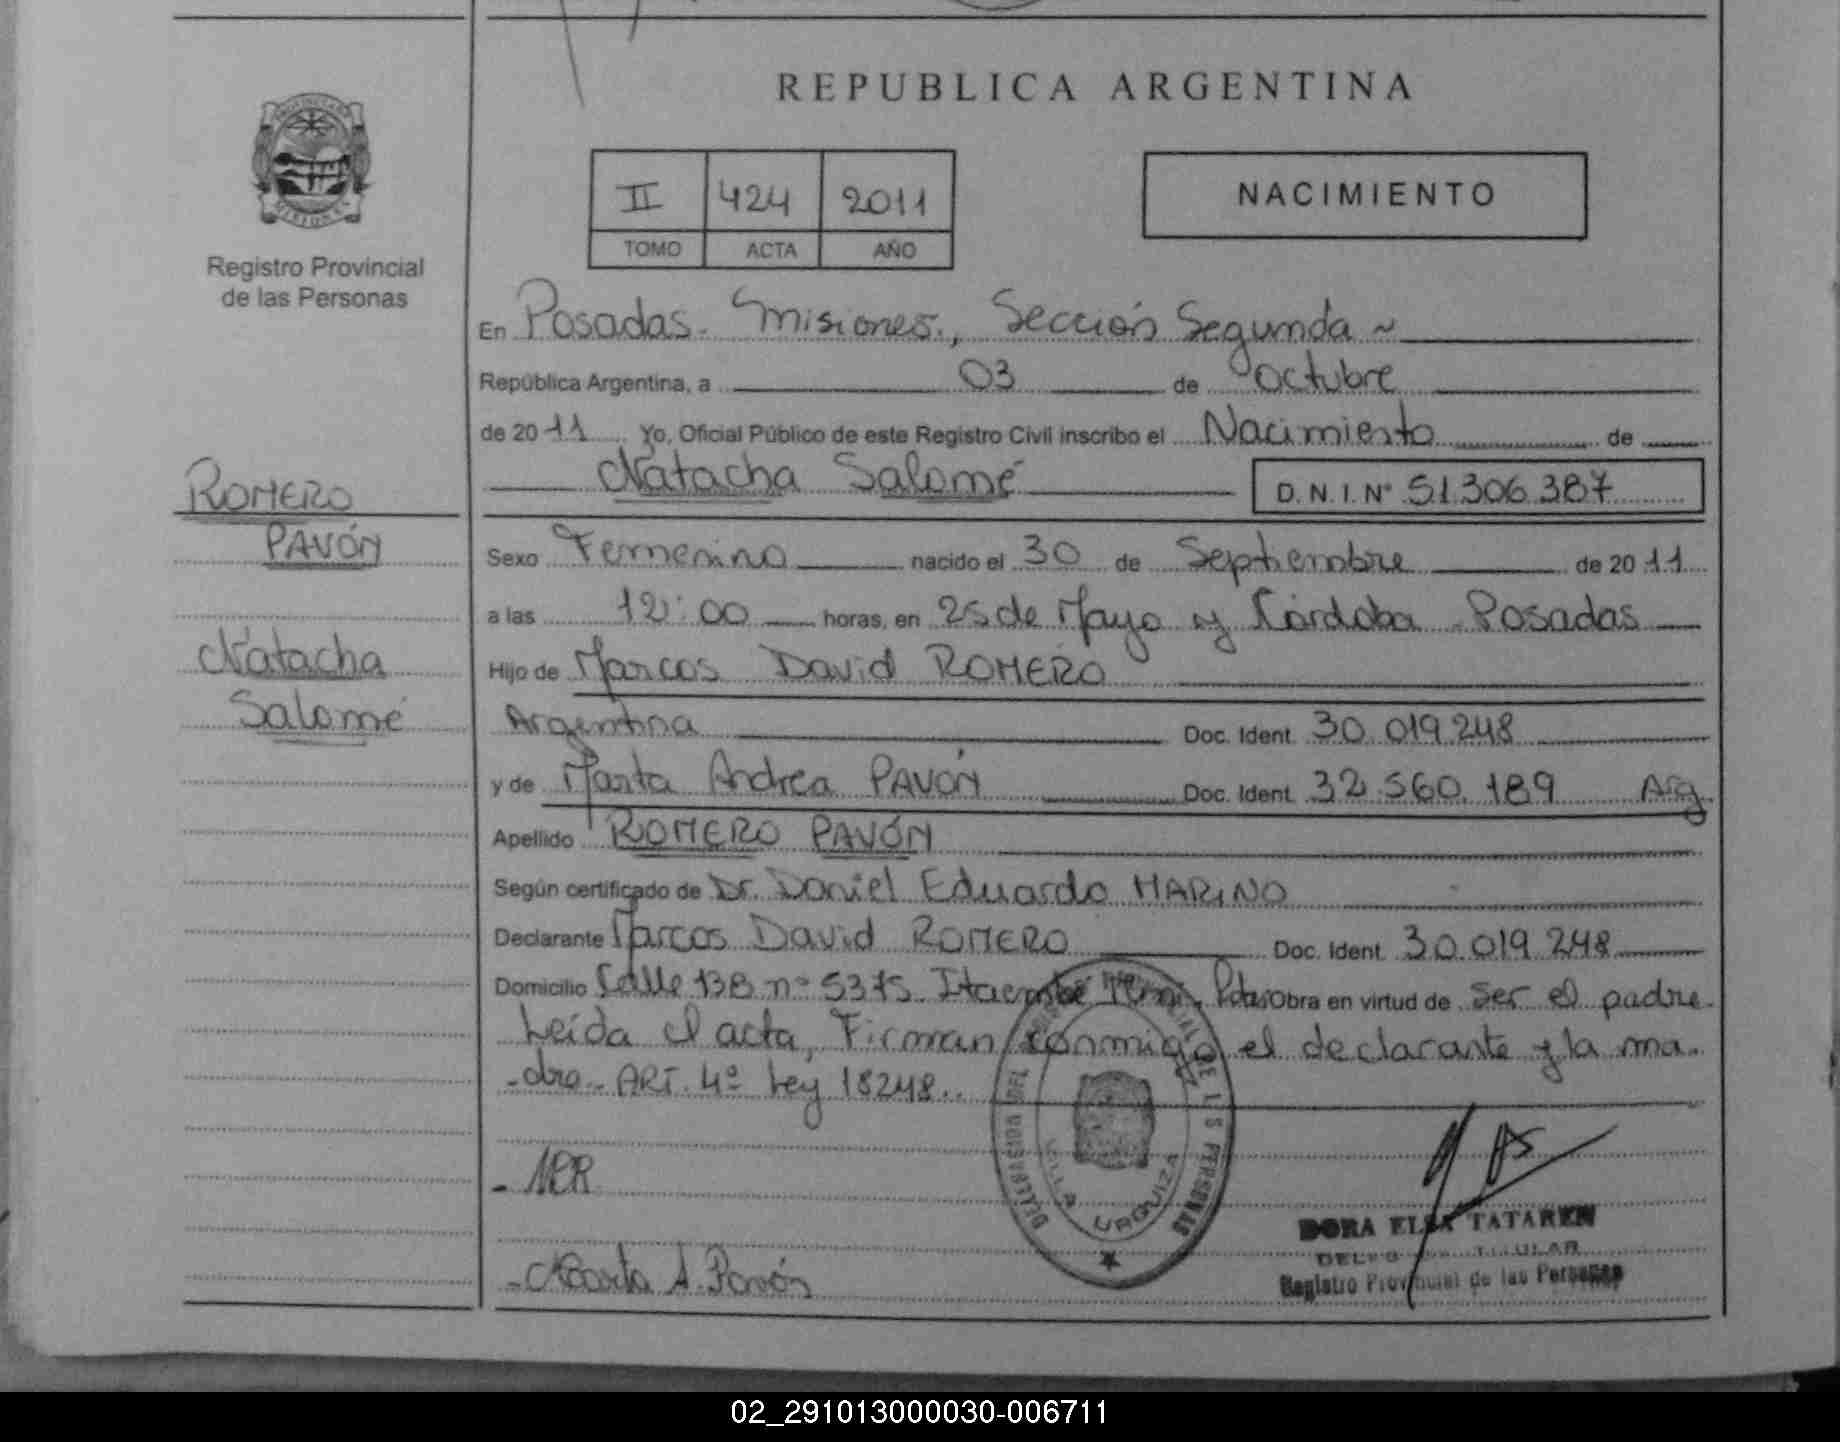 REPUBLICA ARGENTINA
II 424 2011
TOMO ACTA AÑO
NACIMIENTO
Registro Provincial
de las Personas
ROMERO
PAVÓN
Natacha
Salomé
En Posadas. Misiones., Sección Segunda
República Argentina, a 03 de octubre
de 2011 Yo, Oficial Público de este Registro Civil inscribo el Nacimiento de
Natacha Salomé D.N.I. Nº 51.306.387
Sexo Femenino nacido el 30 de Septiembre de 2011
a las 12:00 horas, en 25 de Mayo y Córdoba - Posadas
Hijo de Marcos David ROMERO
Argentina Doc. Ident. 30.019.248
y de Marta Andrea PAVÓN Doc. Ident. 32.560.189 Arg
Apellido ROMERO PAVÓN
Según certificado de Dr. Daniel Eduardo MARINO
Declarante Marcos David ROMERO Doc. Ident. 30.019.248
Domicilio Calle 138 nº 5375. Itaembé Miní, Pdas Obra en virtud de ser el padre.
Leída el acta, Firman conmigo el declarante y la ma-
-dre- ART. 4º Ley 18248..
DELEGACION DEL REGISTRO PROVINCIAL DE LAS PERSONAS
VILLA URQUIZA
Marta A. Pavón
DORA ELSA TATAREN
TITULAR
Registro Provincial de las Personas
02_291013000030-006711